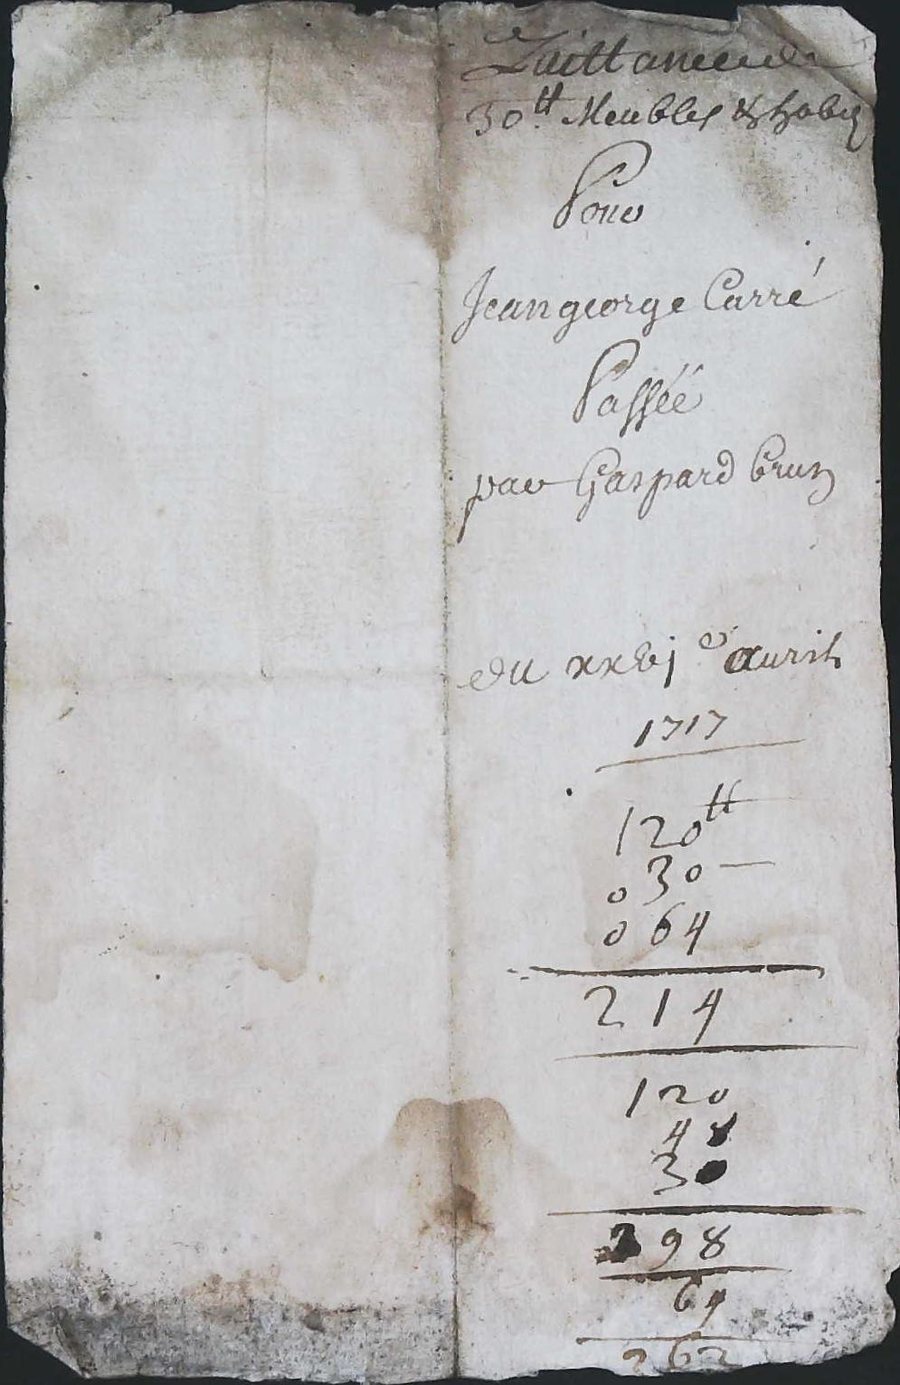 Quittance de
30 ₶ Meubles & habi
Pour
Jean george Carré
Passée
par Gaspard brun
du xxvj e avril
1717
120 ₶
030 —
064
214
120
48
30
198
64
262